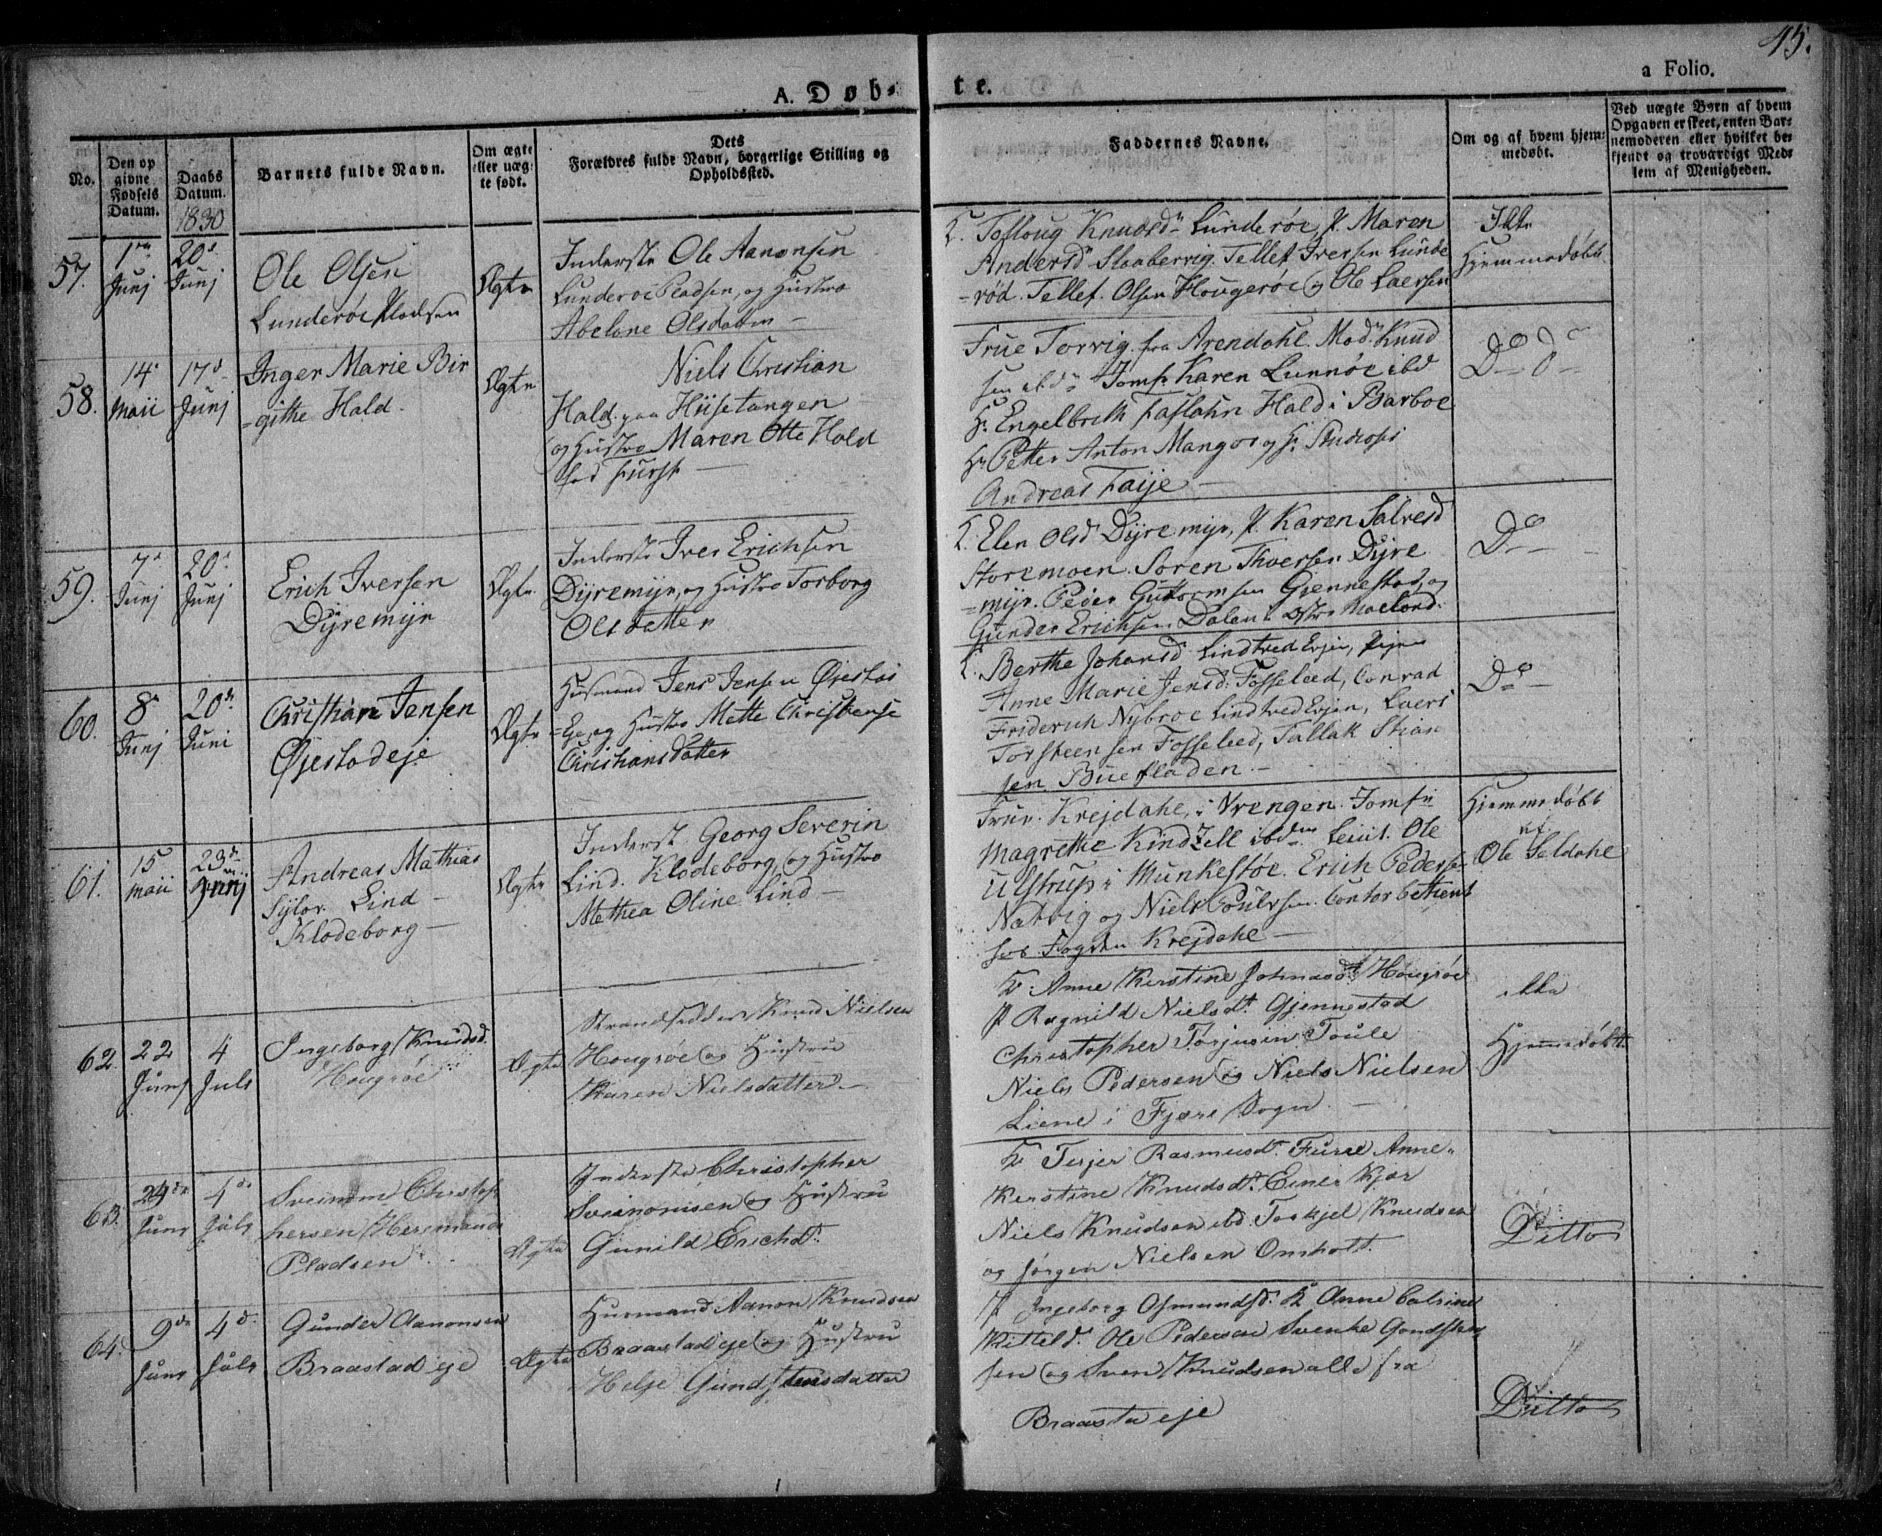 45.
A. Døb-
te.
a Folio.
No.
Den op
givne
Fødsels
Datum.
Daabs
Datum.
1830
Barnets fulde Navn.
Om ægte
eller uæg-
te født.
Dets
Forældres fulde Navn, borgerlige Stilling og
Opholdssted.
Faddernes Navne.
Om og af hvem hjem-
medøbt.
Ved uægte Børn af hvem
Opgaven er skeet, enten Bar-
nemoderen eller hvilket be-
kjendt og troværdigt Med-
lem af Menigheden.
57.
Junj
20
Junj
Ole Olsen
Lunderöe Pladsen
Ægte
Inderste Ole Aanonsen
Lunderoe Pladsen, og Hustro
Abelone Olsdatter
Knudsd. Lunderöe, P. Maren
Andersd Slaabervig. Tellef Iversen Lunde
-röd. Tellef Olsen Hougeröe og Ole Laersen
Ikke
Hjemmedöbt
58.
14
Maii
17
Junj
Inger Marie Bir
=githe Hald.
Ægte
Niels Christian
Hald paa Hüsetangen
og Hustro Maren Otte Hald
föd Fürst
Frue Torvig fra Arendahl. Mad. Knud
sen ibd. Jomf. Karen Lunnöe ibd
Hr Engelbreth Hald i Barboe
Hr Petter Anton Mangor og Hr Studiosi
Andreas Faije
Do Do
59.
7
Junj
20
Junj
Erich Iversen
Dÿremÿr
Ægte
Inderste Iver Erichsen
Dÿremÿr, og Hustro Torborg
Olsdatter
Elen Olsd Dÿremÿr, P. Karen Salvesd
Storemoen. Sören Dÿre
=mÿr. Peder Guttormsen Gjennestad og
Gunder Erichsen Dalen i Östre Moeland.
Do
60.
8
Junj
20
Juni
Christian Jensen
Öjestadeje
Ægte
Husmand Jens Jensen Öjestad
=Eje og Hustro Mette Christense
Christiansdatter
Berthe Johansd Lindtved Eyen, Pigen
Anne Marie Jensd. Fosseleed, Conrad
Friderich Nÿbroe Lindtved Eyen, Laers
Torsteensen Fosseleed, Tallak Stian
sen Buefladen.
Do
61.
15
Maii
23
Junj
Andreas Mathias
Lind
Klodeborg
Ægte
Inderst. Georg Severin
Lind. Klodeborg, og Hustro
Methea Oline Lind
Frue Krejdahl, i Vrengen. Jomfru
Magrethe Kindzell ibdm Leiut. Ole
Ulstrup i Munkestöe. Erich Peders
Natvig og Niels Poulssen. Contorbetient
hos Fogden Krejdahl
Hjemmedöbt
af
Ole Seldahl
62.
22
Junj
4
Juli
Ingeborg Knudsd.
Hougröe
Ægte
Strandsidder Knud Nielsen
Hougröe og Hustru
Karen Nielsdatter
Anne Kirstine Johnasdt. Hougröe
P Ragnild Nielsdt. Gjennestad
Christopher Torjusen Toule
Niels Pedersen og Niels Nielsen
Liene i Fjære Sogn
ikke
Hjemedöbt
63.
Junj
4
July
Christop
hersen
Pladsen
Ægte
Inderste Christopher
Sveinonisen og Hustru
Gunild Erichdt.
Terjer Rasmusdt. Furre Anne
Kirstine Knudsdt. Einer Kjær
Niels Knudsen ibd. Torkjel Knudsen
og Jørgen Nielsen Omholt.
Ditto
64.
9
Junj
4
July
Gunder Aanonsen
Braastad eje
Ægte
Husmand Aanon Knudsen
Braaastad eje og Hustru
Helje Gundstensdatter
P Ingeborg Osmundsd. K Anne Catrine
Kittild. Ole Pedersen Svenke Gundsten
sen og Sven Knudsen alle fra
Braasta eje
Ditto